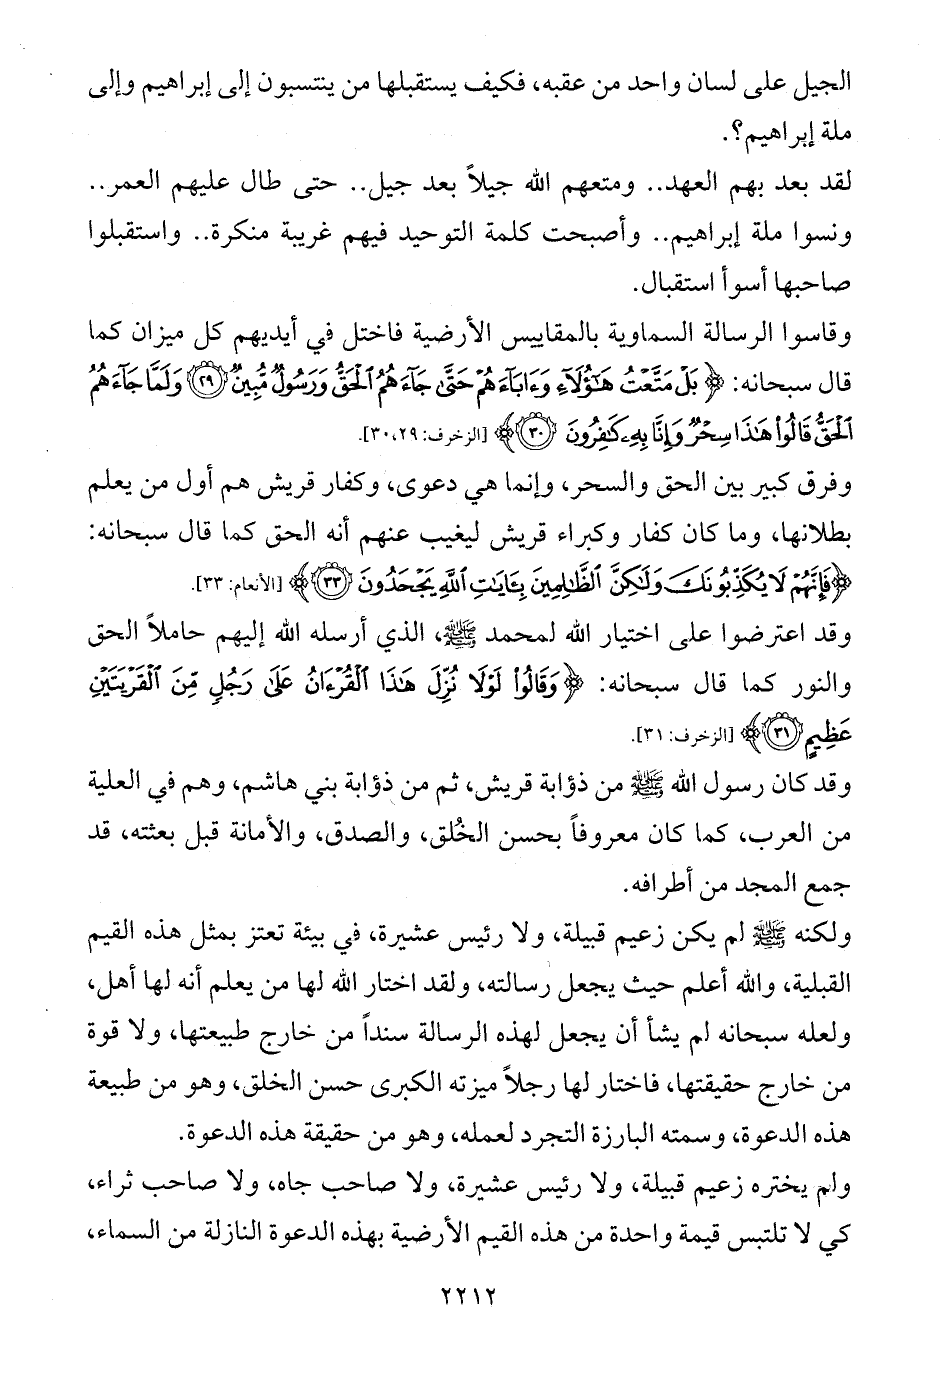 الجيل على لسان واحد من عقبه، فكيف يستقبلها من ينتسبون إلى إبراهيم وإلى
ملة إبراهيم؟.
لقد بعد بهم العهد.. ومتعهم الله جيلاً بعد جيل.. حتى طال عليهم العمر..
ونسوا ملة إبراهيم.. وأصبحت كلمة التوحيد فيهم غريبة منكرة.. واستقبلوا
صاحبها أسوأ استقبال.
وقاسوا الرسالة السماوية بالمقاييس الأرضية فاختل في أيديهم كل ميزان كما
قال سبحانه: ﴿بَلْ مَتَّعْتُ هَٰٓؤُلَآءِ وَءَابَآءَهُمْ حَتَّىٰ جَآءَهُمُ ٱلْحَقُّ وَرَسُولٌ مُّبِينٌ ٢٩ وَلَمَّا جَآءَهُمُ
ٱلْحَقُّ قَالُوا۟ هَٰذَا سِحْرٌ وَإِنَّا بِهِۦ كَٰفِرُونَ ٣٠﴾ [الزخرف: ٢٩، ٣٠].
وفرق كبير بين الحق والسحر، وإنما هي دعوى، وكفار قريش هم أول من يعلم
بطلانها، وما كان كفار وكبراء قريش ليغيب عنهم أنه الحق كما قال سبحانه:
﴿فَإِنَّهُمْ لَا يُكَذِّبُونَكَ وَلَٰكِنَّ ٱلظَّٰلِمِينَ بِـَٔايَٰتِ ٱللَّهِ يَجْحَدُونَ ٣٣﴾ [الأنعام: ٣٣].
وقد اعترضوا على اختيار الله لمحمد ﷺ، الذي أرسله الله إليهم حاملاً الحق
والنور كما قال سبحانه: ﴿وَقَالُوا۟ لَوْلَا نُزِّلَ هَٰذَا ٱلْقُرْءَانُ عَلَىٰ رَجُلٍ مِّنَ ٱلْقَرْيَتَيْنِ
عَظِيمٍ ٣١﴾ [الزخرف: ٣١].
وقد كان رسول الله ﷺ من ذؤابة قريش، ثم من ذؤابة بني هاشم، وهم في العلية
من العرب، كما كان معروفاً بحسن الخُلق، والصدق، والأمانة قبل بعثته، قد
جمع المجد من أطرافه.
ولكنه ﷺ لم يكن زعيم قبيلة، ولا رئيس عشيرة، في بيئة تعتز بمثل هذه القيم
القبلية، والله أعلم حيث يجعل رسالته، ولقد اختار الله لها من يعلم أنه لها أهل،
ولعله سبحانه لم يشأ أن يجعل لهذه الرسالة سنداً من خارج طبيعتها، ولا قوة
من خارج حقيقتها، فاختار لها رجلاً ميزته الكبرى حسن الخلق، وهو من طبيعة
هذه الدعوة، وسمته البارزة التجرد لعمله، وهو من حقيقة هذه الدعوة.
ولم يختره زعيم قبيلة، ولا رئيس عشيرة، ولا صاحب جاه، ولا صاحب ثراء،
كي لا تلتبس قيمة واحدة من هذه القيم الأرضية بهذه الدعوة النازلة من السماء،
٢٢١٢